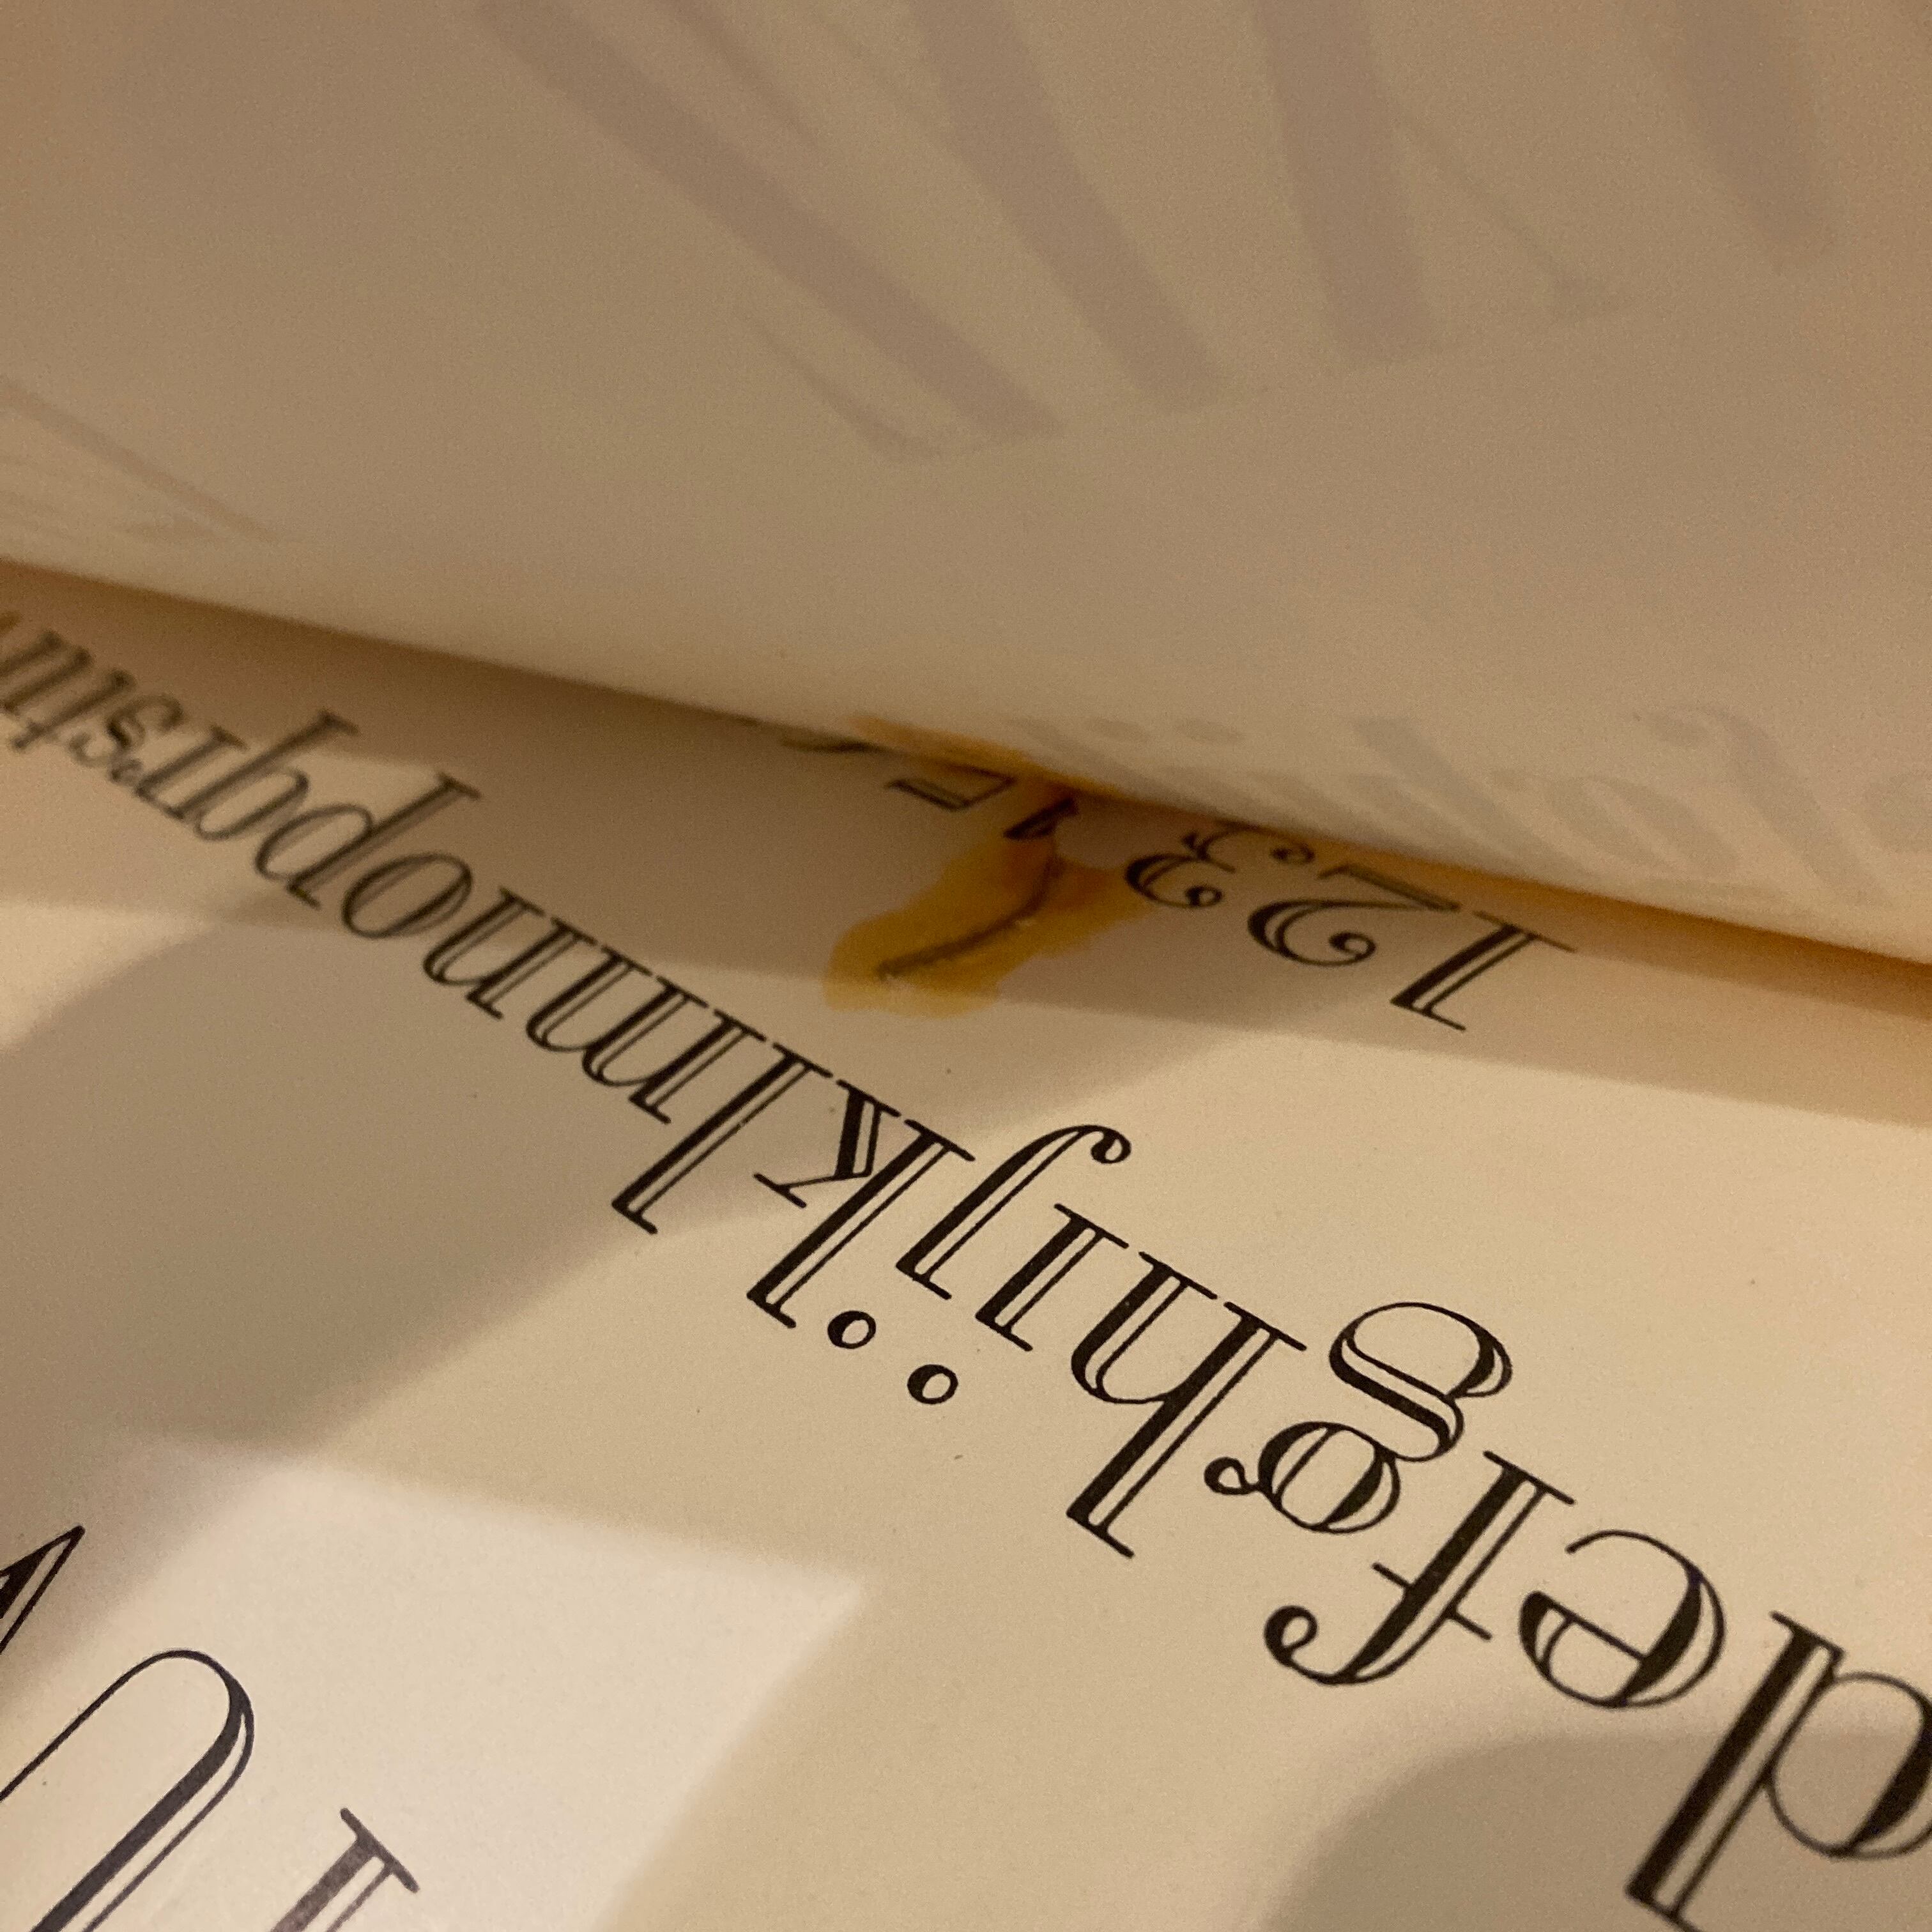 TU
defghijklmnopqrstu
123